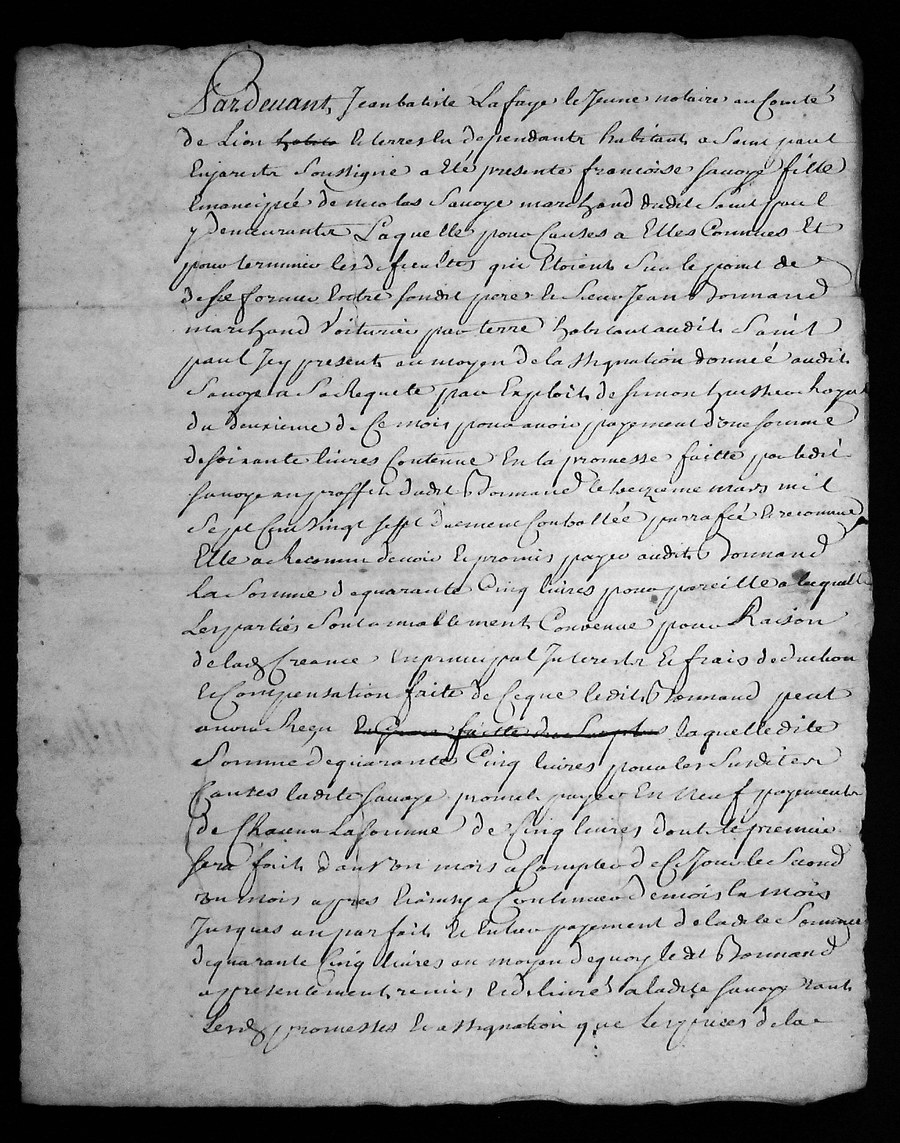 Pardevant Jean batiste Lafaye le Jeune notaire au Comté
de Lion habita et terres en dependants habitant a Saint paul
Enjarests Soussigné a Eté presente francoise Savoye fille
Emancipée de nicolas Savoye marchand dudit Saint paul
y demeurante Laquelle pour Causes a Elles Connues Et
pour terminer les dificultes qui Etoient Sur le point de
de se former Entre sondit pere et Sieur Jean Bonnand
marchand Voiturier par terre habitant audit Saint
paul Icy present au moyen de lassignation donneé audit
Savoye a Sa Requete par Exploit de Simon huissier Royal
du deuxieme de Ce mois pour avoir payement d'une somme
de soixante livres Contenue En la promesse faitte par ledit
Savoye au proffit dudit Bonnand le treizieme mars mil
Sept Cent Vingt Sept duement Controllée parrafeé et reconnue
Elle a Reconnu devoir et promis payer audit Bonnand
La Somme de quarante Cinq livres pour pareille a laquelle
Les parties Sont amiablement Convenue pour Raison
de lade Creance En principal Interests et frais deduction
et Compensation faite de Ceque ledit Bonnand peut
avoir Reçu laquelle dite
Somme de quarante Cinq livres pour les Susdites
Causes ladite Savoye promet payer En Neuf payements
de Chacun La Somme de Cinq livres dont le premier
sera fait dans un mois a Compter de Ce Jour le Second
un mois apres Et ainsy a Continuer de mois En mois
Jusques au parfait et Entier payement de ladite Somme
de quarante Cinq livres au moyen de quoy ledt Bonnand
a presentement remis et delivré a ladite Savoye tant
Lesd promesses et assignation que les pieces de la